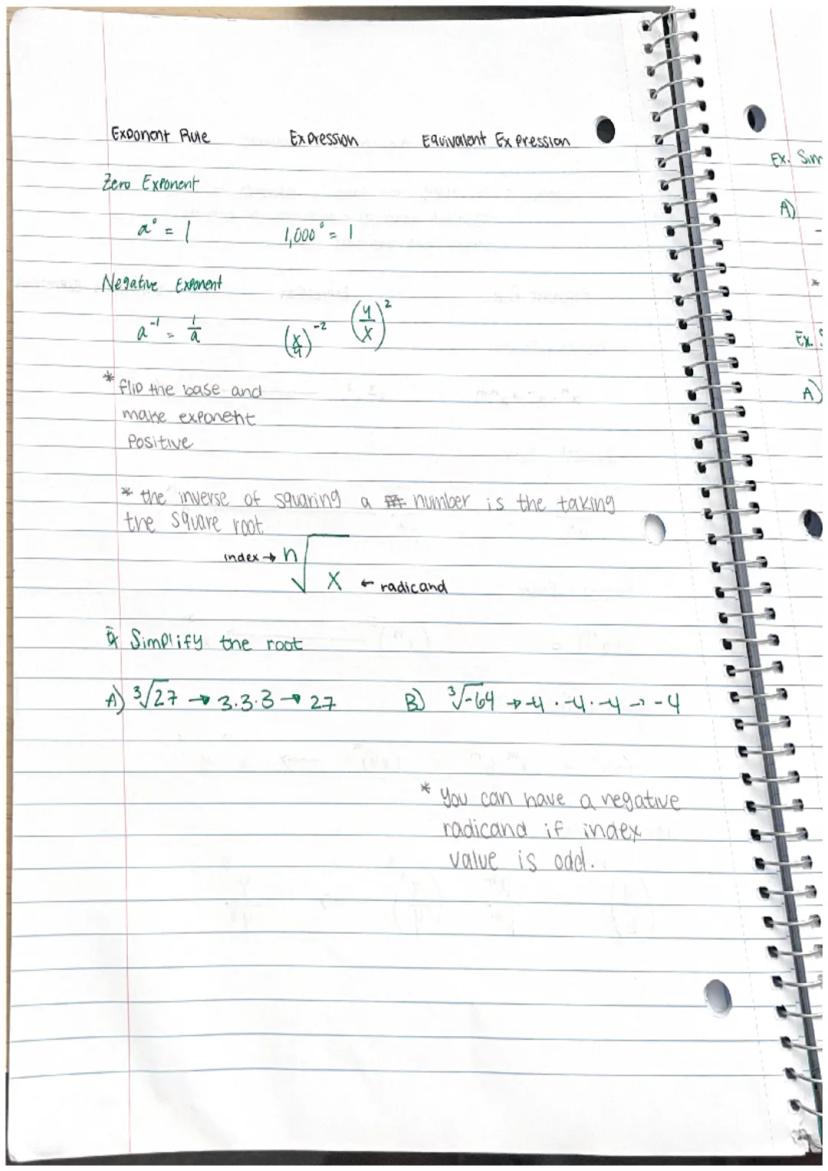 Exponent Rule Expression Equivalent Expression
Zero Exponent
a⁰ = 1 1,000⁰ = 1
Negative Exponent
a⁻¹ = 1/a (x/4)⁻² (4/x)²
* flip the base and
make exponent
positive
* the inverse of squaring a number is the taking
the square root
index → n√x ← radicand
Ex Simplify the root
A) ³√27 → 3.3.3 → 27 B) ³√-64 → -4 · -4 · -4 → -4
* You can have a negative
radicand if index
value is odd.
Ex. Sim
A)
-
*
Ex.
A)